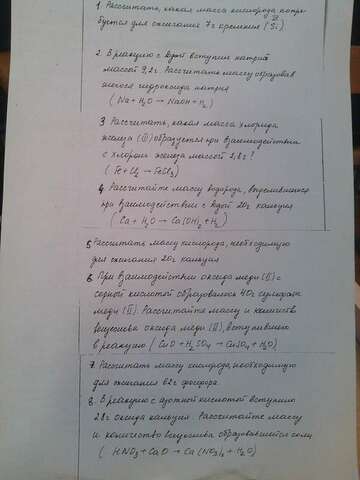 1. Рассчитать, какая масса кислорода потре-
буется для сжигания 7г кремния (Si). IV
2. В реакцию с водой вступил натрий
массой 9,2г. Рассчитать массу образовав
шегося гидроксида натрия
(Na + H2O → NaOH + H2)
3. Рассчитать, какая масса хлорида
железа (III) образуется при взаимодействии
с хлором железа массой 2,8г?
(Fe + Cl2 → FeCl3)
4. Рассчитайте массу водорода, выделившегося
при взаимодействии с водой 20г кальция
(Ca + H2O → Ca(OH)2 + H2)
5. Рассчитать массу кислорода, необходимую
для сжигания 20г кальция
6. При взаимодействии оксида меди (II) с
серной кислотой образовалось 40г сульфата
меди (II). Рассчитайте массу и количеств
вещества оксида меди (II), вступившего
в реакцию (CuO + H2SO4 → CuSO4 + H2O)
7. Рассчитать массу кислорода, необходимую
для сжигания 62г фосфора.
8. В реакцию с азотной кислотой вступило
28г оксида кальция. Рассчитайте массу
и количество вещества образовавшейся соли
( HNO3 + CaO → Ca(NO3)2 + H2O)